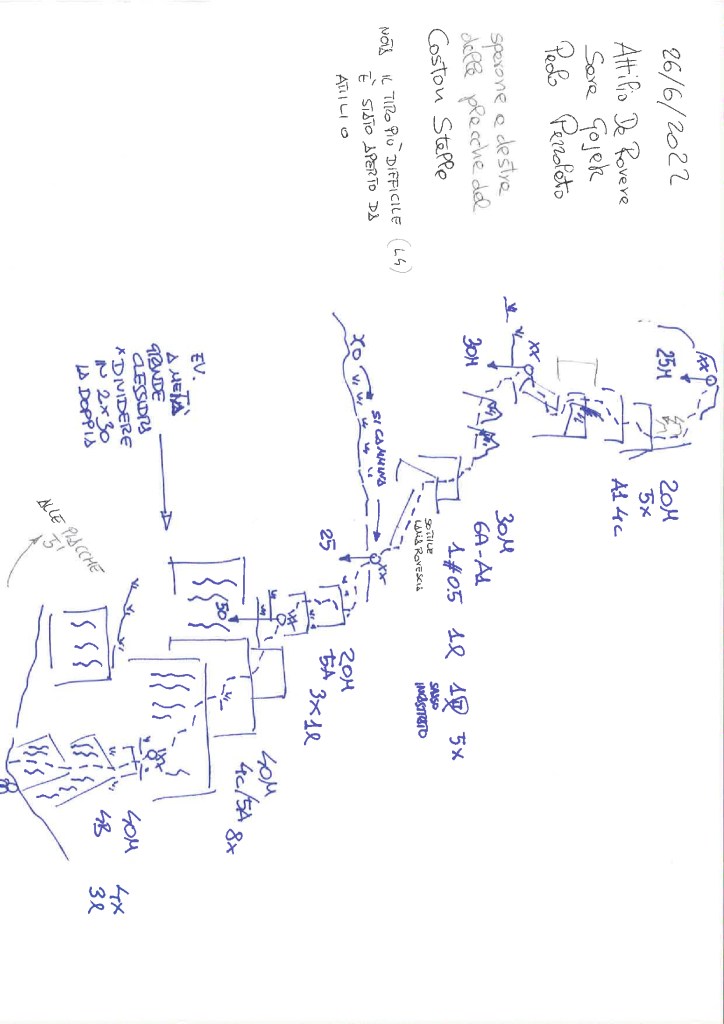 26/6/2022
Attilio De Rovere
Sara Gojek
Paolo Pezzolato
sperone a destra
delle placche del
Coston Stelle
NOTA IL TIRO PIÙ DIFFICILE (L4)
È STATO APERTO DA
ATTILIO
XX
25M
20M
5X
A1 4C
XX
30M
30M
6A-A1
1#0.5 1l 1 5X
SASSO
INCASTRATO
SOTTILE
LAMA ROVESCIA
XO
SI CAMMINA
XX
25
20M
5A
3X 1l
XX
50
EV.
A METÀ
GRANDE
CLESSIDRA
X DIVIDERE
IN 2X30
LA DOPPIA
40M
4C/5A
8X
XX
40M
4B
4X
3l
ALLE PLACCHE